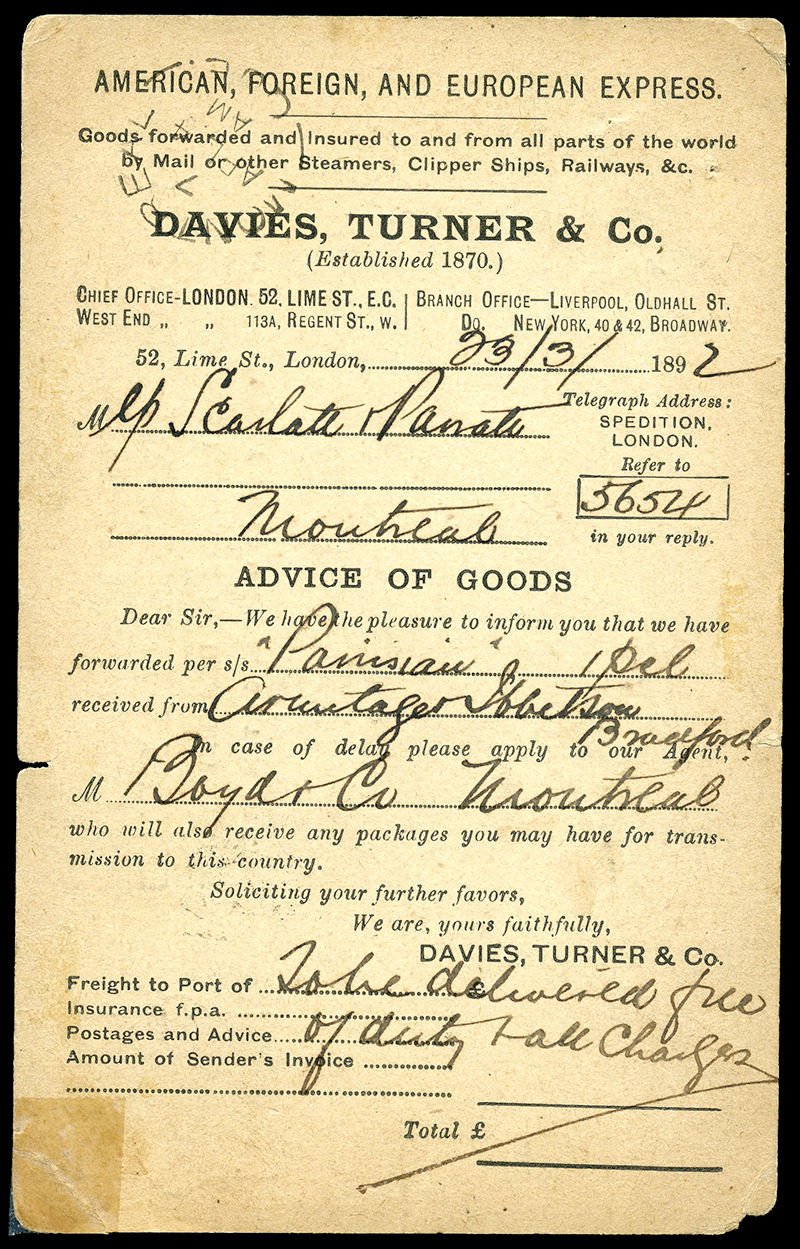 AMERICAN, FOREIGN, AND EUROPEAN EXPRESS.
Goods forwarded and Insured to and from all parts of the world
by Mail or other Steamers, Clipper Ships, Railways, &c.
DAVIES, TURNER & Co.
(Established 1870.)
CHIEF OFFICE-LONDON. 52, LIME ST., E.C. | BRANCH OFFICE—LIVERPOOL, OLDHALL ST.
WEST END „ „ 113A, REGENT ST., W. | DO. NEW YORK, 40 & 42, BROADWAY.
52, Lime St., London, 23/3/ 1892
M Scarlatt & Telegraph Address:
SPEDITION,
LONDON.
Refer to
5654
Montreal
in your reply.
ADVICE OF GOODS
Dear Sir,—We have the pleasure to inform you that we have
forwarded per s/s "Parisian" 1 pcl
received from Armitage & Ibbetson
Bradford
In case of delay please apply to our Agent,
M Boyd & Co Montreal
who will also receive any packages you may have for trans-
mission to this country.
Soliciting your further favors,
We are, yours faithfully,
DAVIES, TURNER & Co.
Freight to Port of To be delivered free
Insurance f.p.a.
Postages and Advice of duty & all Charges
Amount of Sender's Invoice
Total £